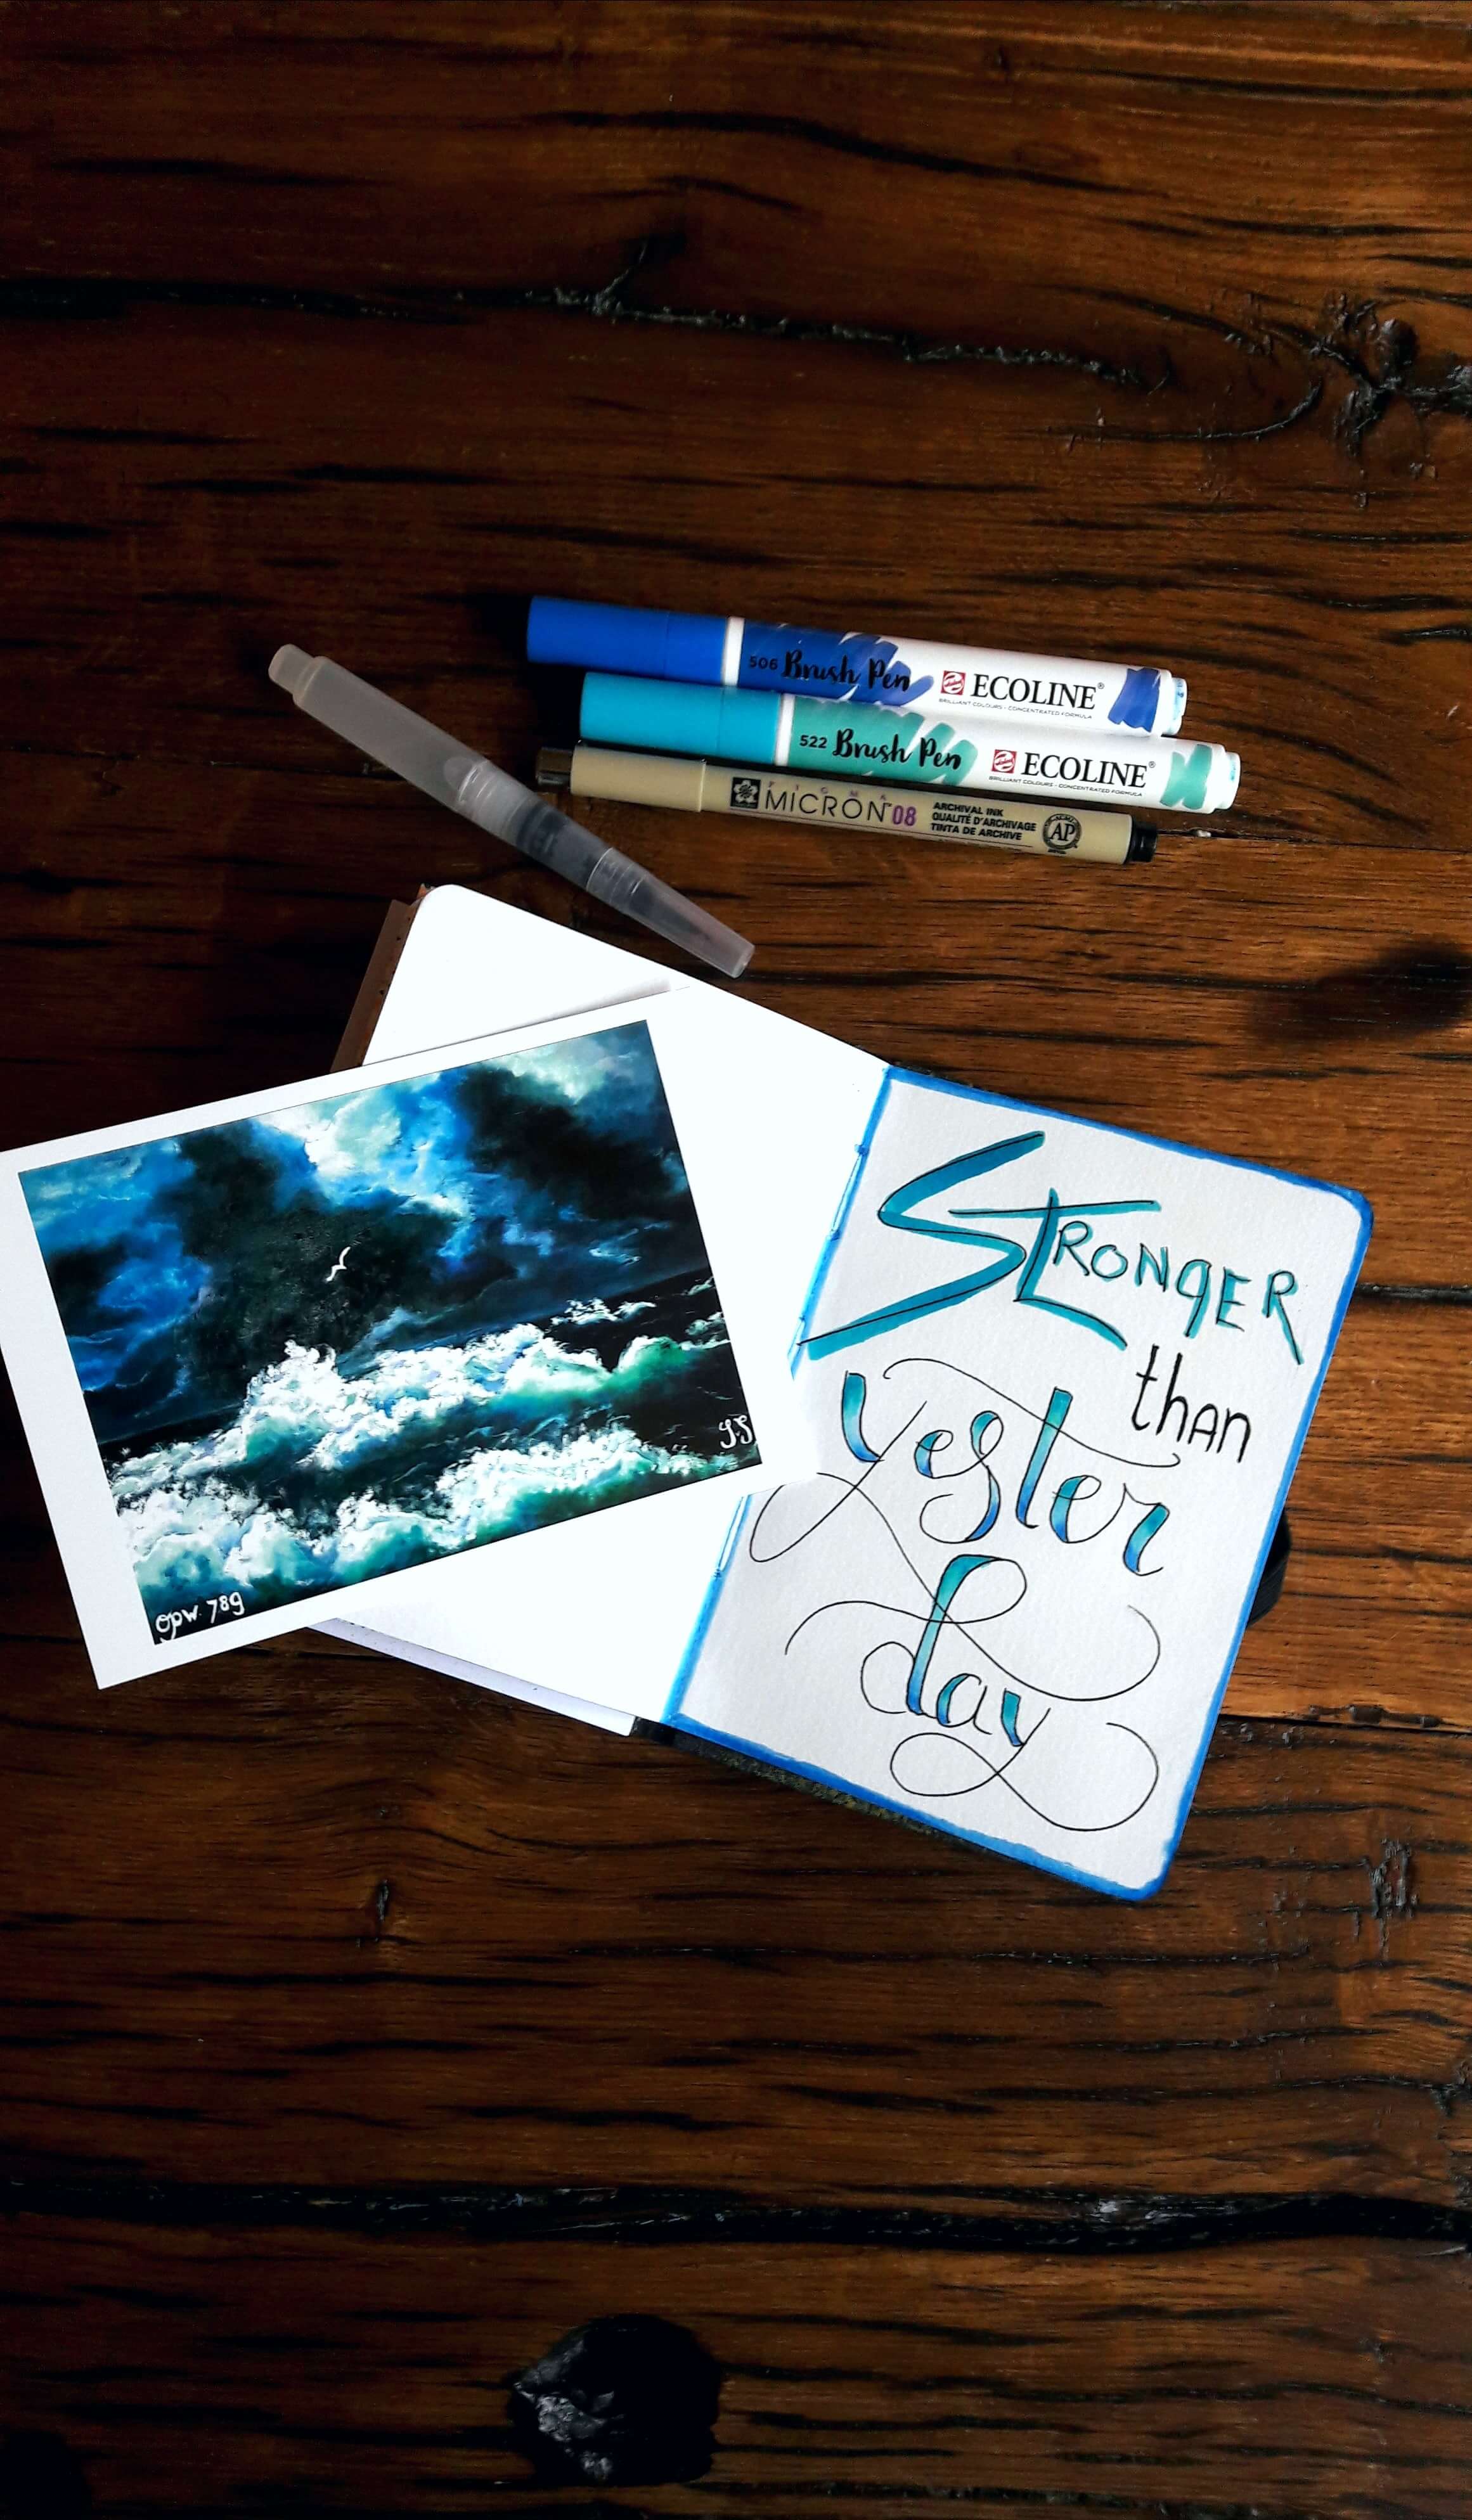 506 Brush Pen ECOLINE®
BRILLIANT COLOURS - CONCENTRATED FORMULA
522 Brush Pen ECOLINE®
BRILLIANT COLOURS - CONCENTRATED FORMULA
PIGMA
MICRON™ 08
ARCHIVAL INK
QUALITÉ D'ARCHIVAGE
TINTA DE ARCHIVE
AP
STRONGER
than
yester
day
J.S
opw. 789